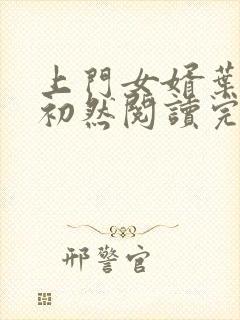 上門女婿葉
初然閱讀完
邢警官